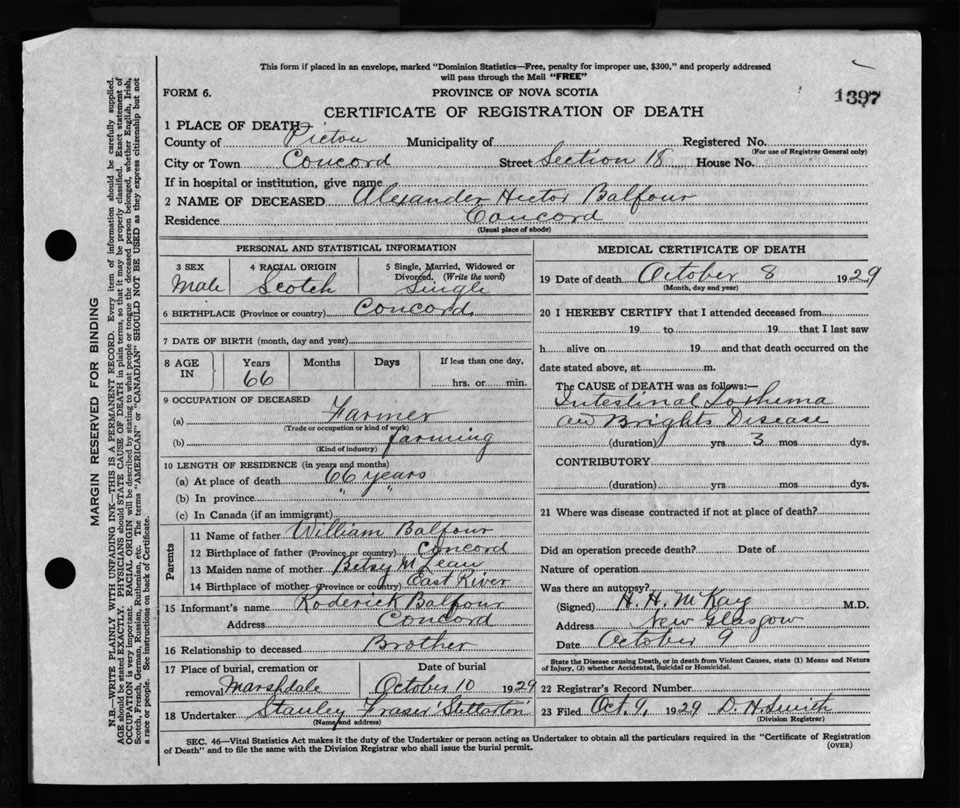 This form if placed in an envelope, marked "Dominion Statistics—Free, penalty for improper use, $300," and properly addressed
will pass through the Mail "FREE"
FORM 6. PROVINCE OF NOVA SCOTIA 1397
CERTIFICATE OF REGISTRATION OF DEATH
1 PLACE OF DEATH
County of Pictou Municipality of Registered No.
(For use of Registrar General only)
City or Town Concord Street Section 18 House No.
If in hospital or institution, give name
2 NAME OF DECEASED Alexander Hector Balfour
Residence Concord
(Usual place of abode)
PERSONAL AND STATISTICAL INFORMATION
3 SEX 4 RACIAL ORIGIN 5 Single, Married, Widowed or
Divorced. (Write the word)
Male Scotch Single
6 BIRTHPLACE (Province or country) Concord
7 DATE OF BIRTH (month, day and year)
8 AGE IN Years Months Days If less than one day,
66 hrs. or min.
9 OCCUPATION OF DECEASED
(a) Farmer
(Trade or occupation or kind of work)
(b) farming
(Kind of industry)
10 LENGTH OF RESIDENCE (in years and months)
(a) At place of death 66 years
(b) In province " "
(c) In Canada (if an immigrant)
Parents
11 Name of father William Balfour
12 Birthplace of father (Province or country) Concord
13 Maiden name of mother Betsy McLean
14 Birthplace of mother (Province or country) East River
15 Informant's name Roderick Balfour
Address Concord
16 Relationship to deceased Brother
17 Place of burial, cremation or Date of burial
removal Marshdale October 10 1929
18 Undertaker Stanley Fraser Stellarton
(Name and address)
MEDICAL CERTIFICATE OF DEATH
19 Date of death October 8 1929
(Month, day and year)
20 I HEREBY CERTIFY that I attended deceased from
19 to 19 that I last saw
h alive on 19 and that death occurred on the
date stated above, at m.
The CAUSE of DEATH was as follows:—
Intestinal
Brights Disease
(duration) yrs 3 mos dys.
CONTRIBUTORY
(duration) yrs. mos dys.
21 Where was disease contracted if not at place of death?
Did an operation precede death? Date of
Nature of operation
Was there an autopsy?
(Signed) H. H. McKay M.D.
Address New Glasgow
Date October 9
State the Disease causing Death, or in death from Violent Causes, state (1) Means and Nature
of Injury, (2) whether Accidental, Suicidal or Homicidal.
22 Registrar's Record Number
23 Filed Oct. 9, 1929 D. H Smith
(Division Registrar)
SEC. 46—Vital Statistics Act makes it the duty of the Undertaker or person acting as Undertaker to obtain all the particulars required in the "Certificate of Registration
of Death" and to file the same with the Division Registrar who shall issue the burial permit. (OVER)
MARGIN RESERVED FOR BINDING
N.B.—WRITE PLAINLY WITH UNFADING INK—THIS IS A PERMANENT RECORD. Every item of information should be carefully supplied.
AGE should be stated EXACTLY. PHYSICIANS should STATE CAUSE OF DEATH in plain terms, so that it may be properly classified. Exact statement of
OCCUPATION is very important. RACIAL ORIGIN will be described by stating to what people or tongue the deceased person belonged, whether English, Irish,
Scotch, French, German, Russian, Ruthenian, etc. The terms "AMERICAN" or "CANADIAN" SHOULD NOT BE USED as they express citizenship but not
a race or people. See instructions on back of Certificate.